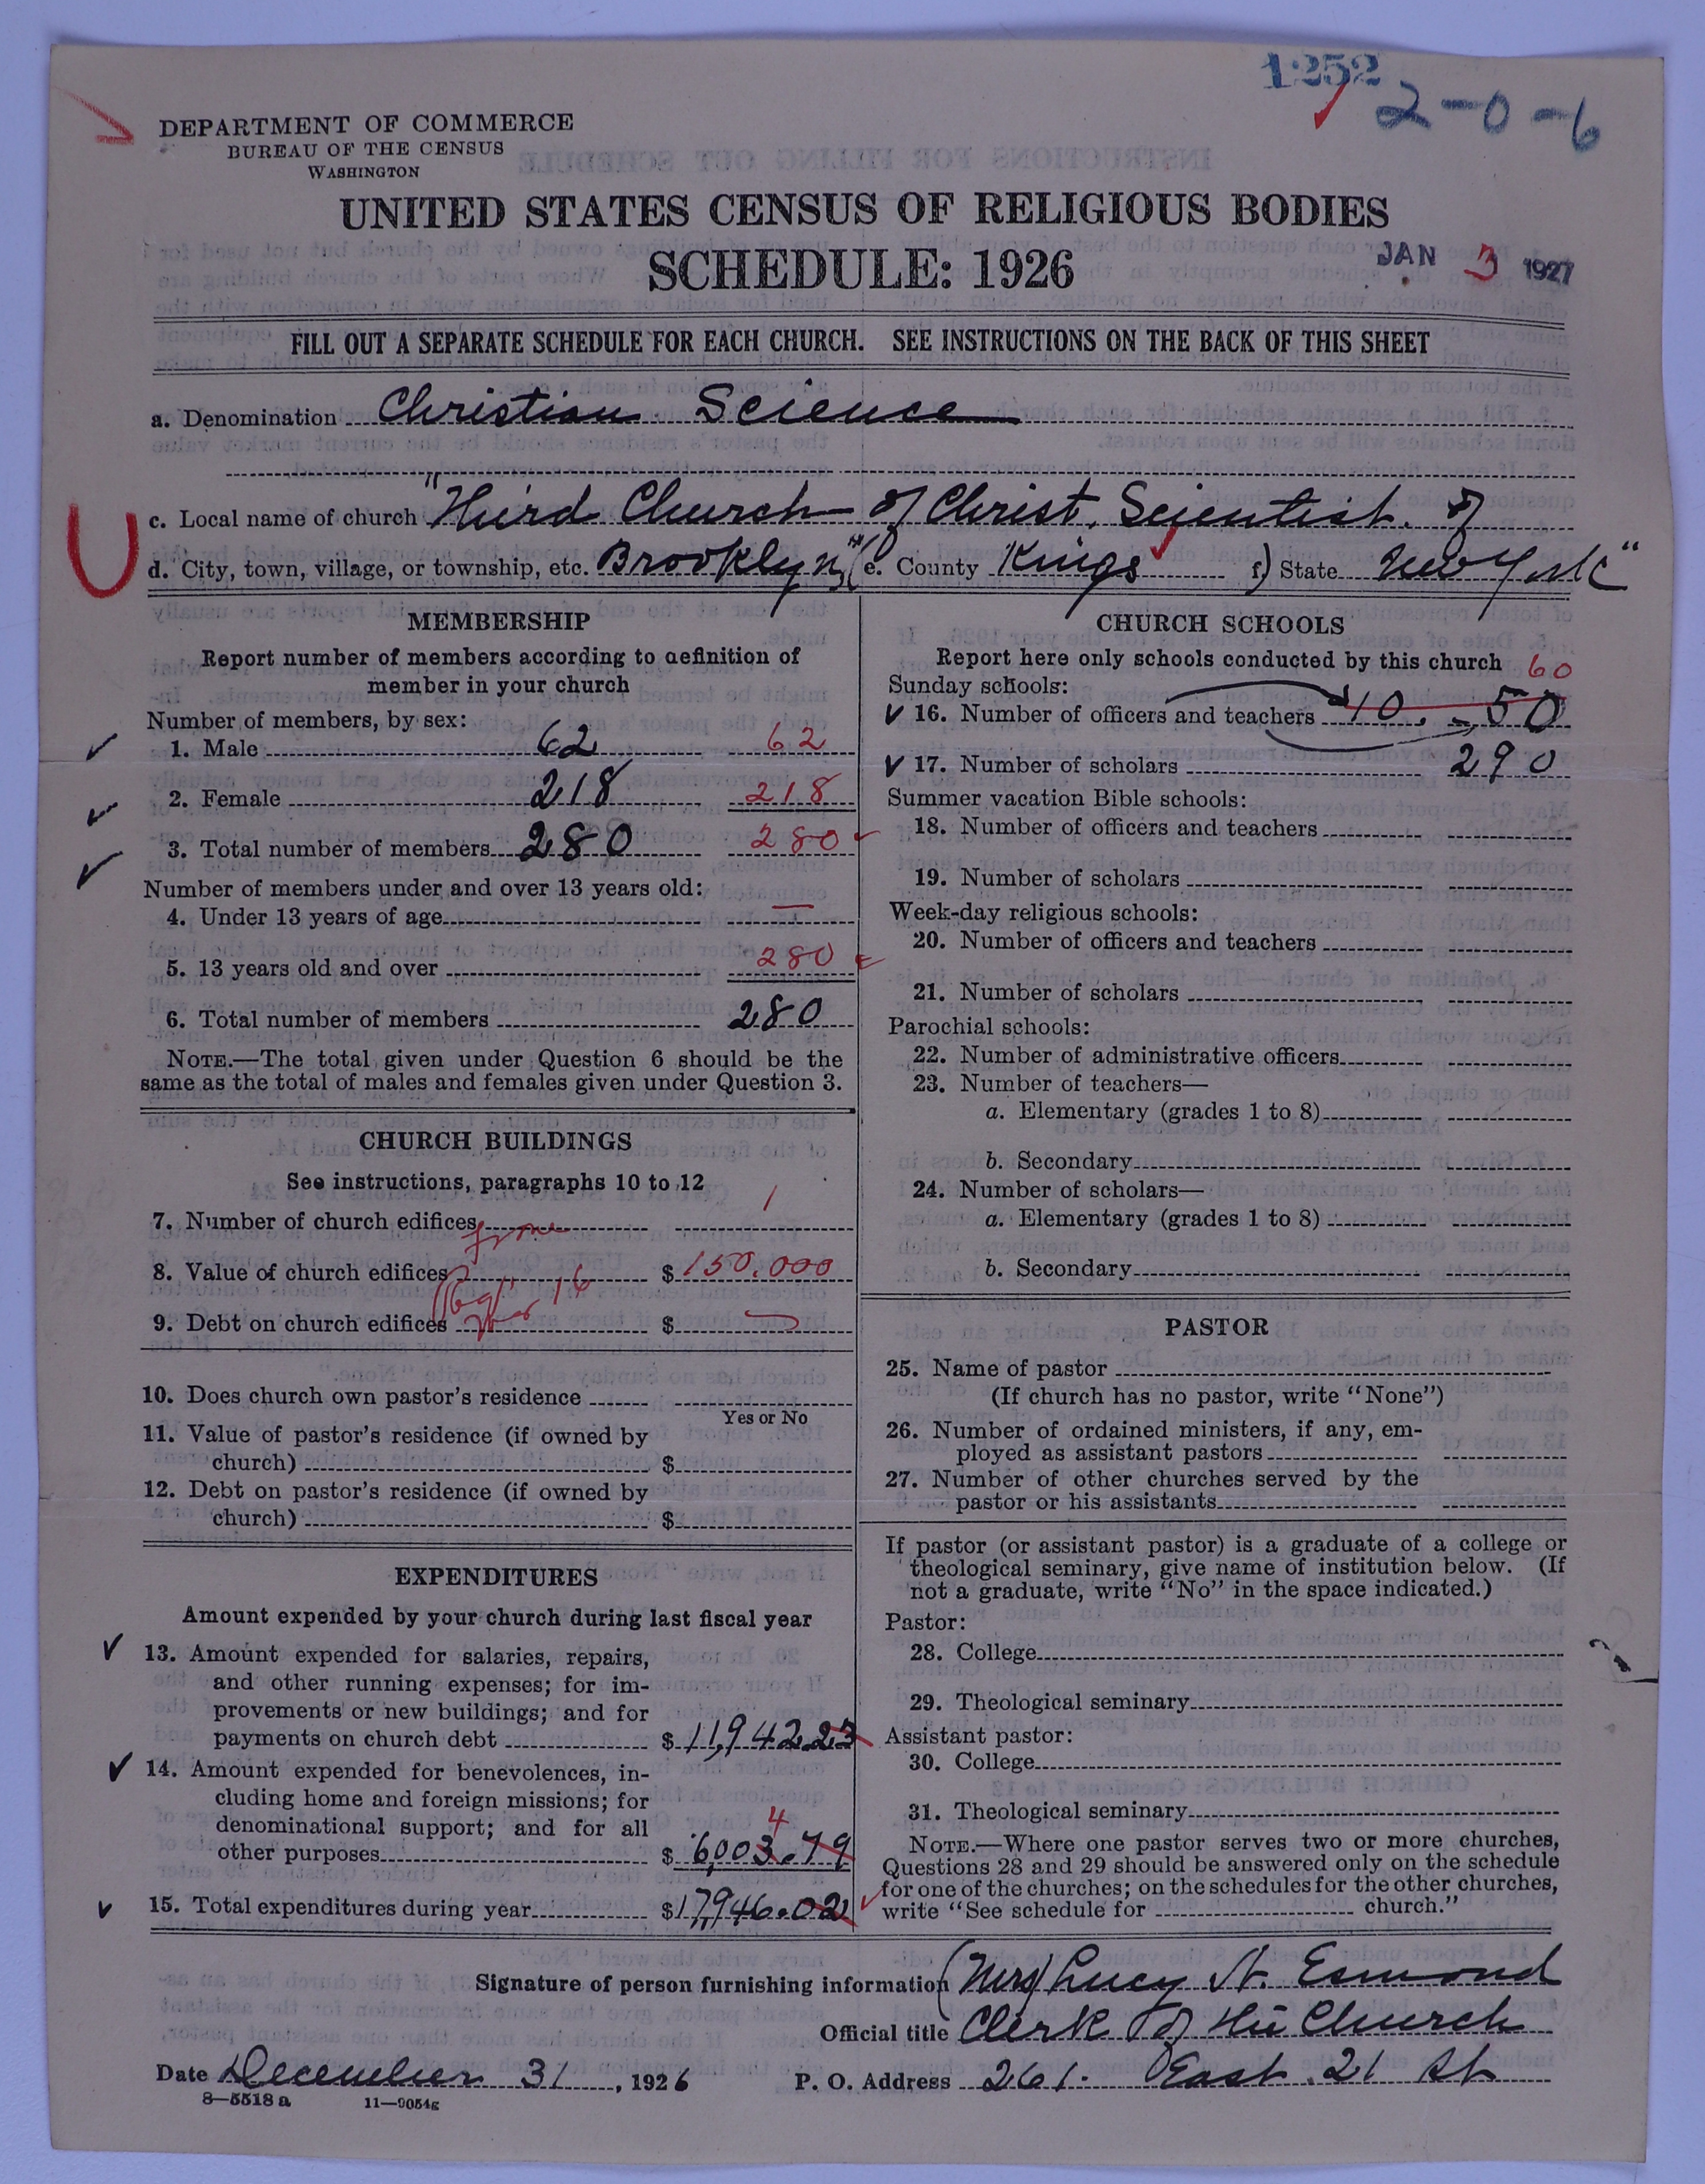 1252
2-0-6
DEPARTMENT OF COMMERCE
BUREAU OF THE CENSUS
WASHINGTON
UNITED STATES CENSUS OF RELIGIOUS BODIES
SCHEDULE: 1926
JAN 3 1927
FILL OUT A SEPARATE SCHEDULE FOR EACH CHURCH. SEE INSTRUCTIONS ON THE BACK OF THIS SHEET
a. Denomination Christian Science
c. Local name of church "Third Church of Christ, Scientist, of
d. City, town, village, or township, etc. Brooklyn," (e. County Kings f) State New York"
MEMBERSHIP
Report number of members according to definition of
member in your church
Number of members, by sex:
1. Male 62 62
2. Female 218 218
3. Total number of members 280 280
Number of members under and over 13 years old:
4. Under 13 years of age —
5. 13 years old and over 280
6. Total number of members 280
NOTE.—The total given under Question 6 should be the
same as the total of males and females given under Question 3.
CHURCH BUILDINGS
See instructions, paragraphs 10 to 12
7. Number of church edifices 1
from
8. Value of church edifices $ 150.000
16
9. Debt on church edifices $ —
10. Does church own pastor's residence
Yes or No
11. Value of pastor's residence (if owned by
church) $
12. Debt on pastor's residence (if owned by
church) $
EXPENDITURES
Amount expended by your church during last fiscal year
13. Amount expended for salaries, repairs,
and other running expenses; for im-
provements or new buildings; and for
payments on church debt $ 11,942.23
14. Amount expended for benevolences, in-
cluding home and foreign missions; for
denominational support; and for all
4
other purposes $ 6,003.79
15. Total expenditures during year $ 17,946.02
CHURCH SCHOOLS
Report here only schools conducted by this church
60
Sunday schools:
16. Number of officers and teachers 10. - 50
17. Number of scholars 290
Summer vacation Bible schools:
18. Number of officers and teachers
19. Number of scholars
Week-day religious schools:
20. Number of officers and teachers
21. Number of scholars
Parochial schools:
22. Number of administrative officers
23. Number of teachers—
a. Elementary (grades 1 to 8)
b. Secondary
24. Number of scholars—
a. Elementary (grades 1 to 8)
b. Secondary
PASTOR
25. Name of pastor
(If church has no pastor, write "None")
26. Number of ordained ministers, if any, em-
ployed as assistant pastors
27. Number of other churches served by the
pastor or his assistants
If pastor (or assistant pastor) is a graduate of a college or
theological seminary, give name of institution below. (If
not a graduate, write "No" in the space indicated.)
Pastor:
28. College
29. Theological seminary
Assistant pastor:
30. College
31. Theological seminary
NOTE.—Where one pastor serves two or more churches,
Questions 28 and 29 should be answered only on the schedule
for one of the churches; on the schedules for the other churches,
write "See schedule for church."
Signature of person furnishing information (Mrs) Lucy A. Esmond
Official title Clerk of the Church
Date December 31, 1926 P. O. Address 261. East 21 St
8—5518 a 11—9054g